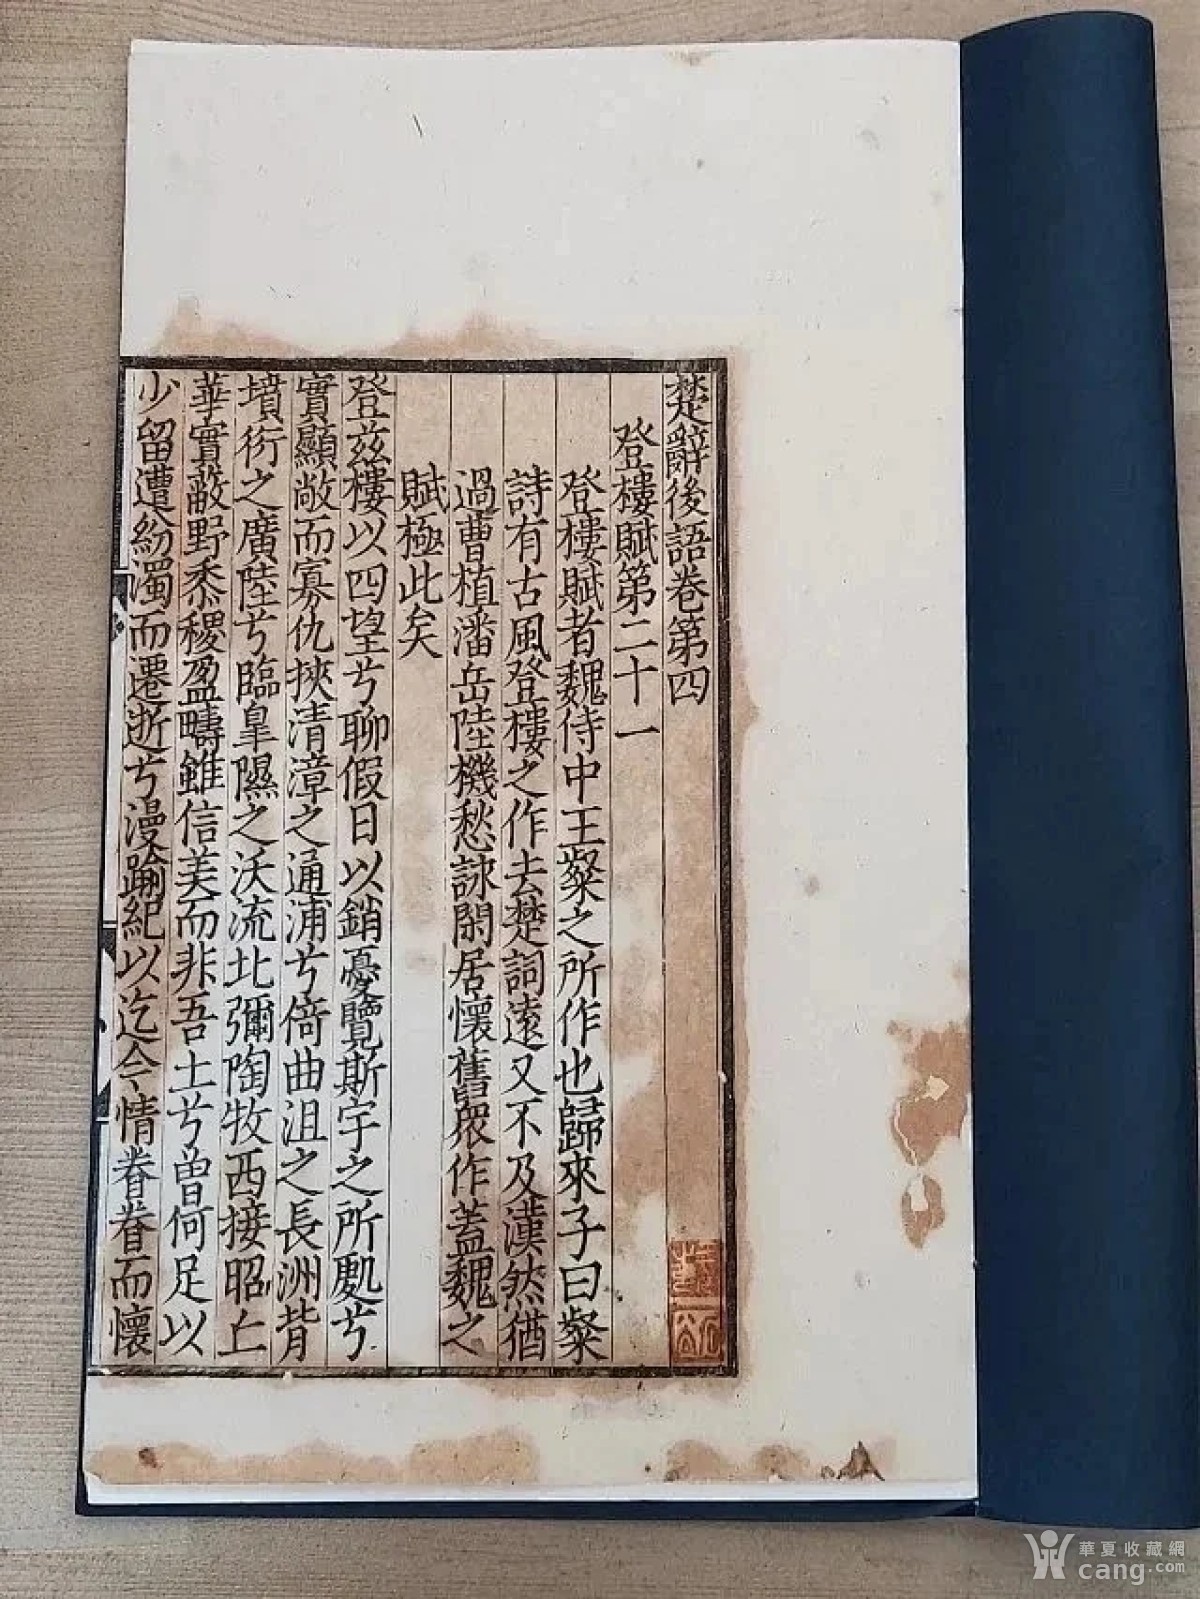 楚辭後語卷第四
登樓賦第二十一
登樓賦者魏侍中王粲之所作也歸來子曰粲
詩有古風登樓之作去楚詞遠又不及漢然猶
過曹植潘岳陸機愁詠閑居懷舊衆作蓋魏之
賦極此矣
登茲樓以四望兮聊假日以銷憂覽斯宇之所處兮
實顯敞而寡仇挾清漳之通浦兮倚曲沮之長洲背
墳衍之廣陸兮臨皐隰之沃流北彌陶牧西接昭丘
華實蔽野黍稷盈疇雖信美而非吾土兮曾何足以
少留遭紛濁而遷逝兮漫踰紀以迄今情眷眷而懷
華夏收藏網
cang.com